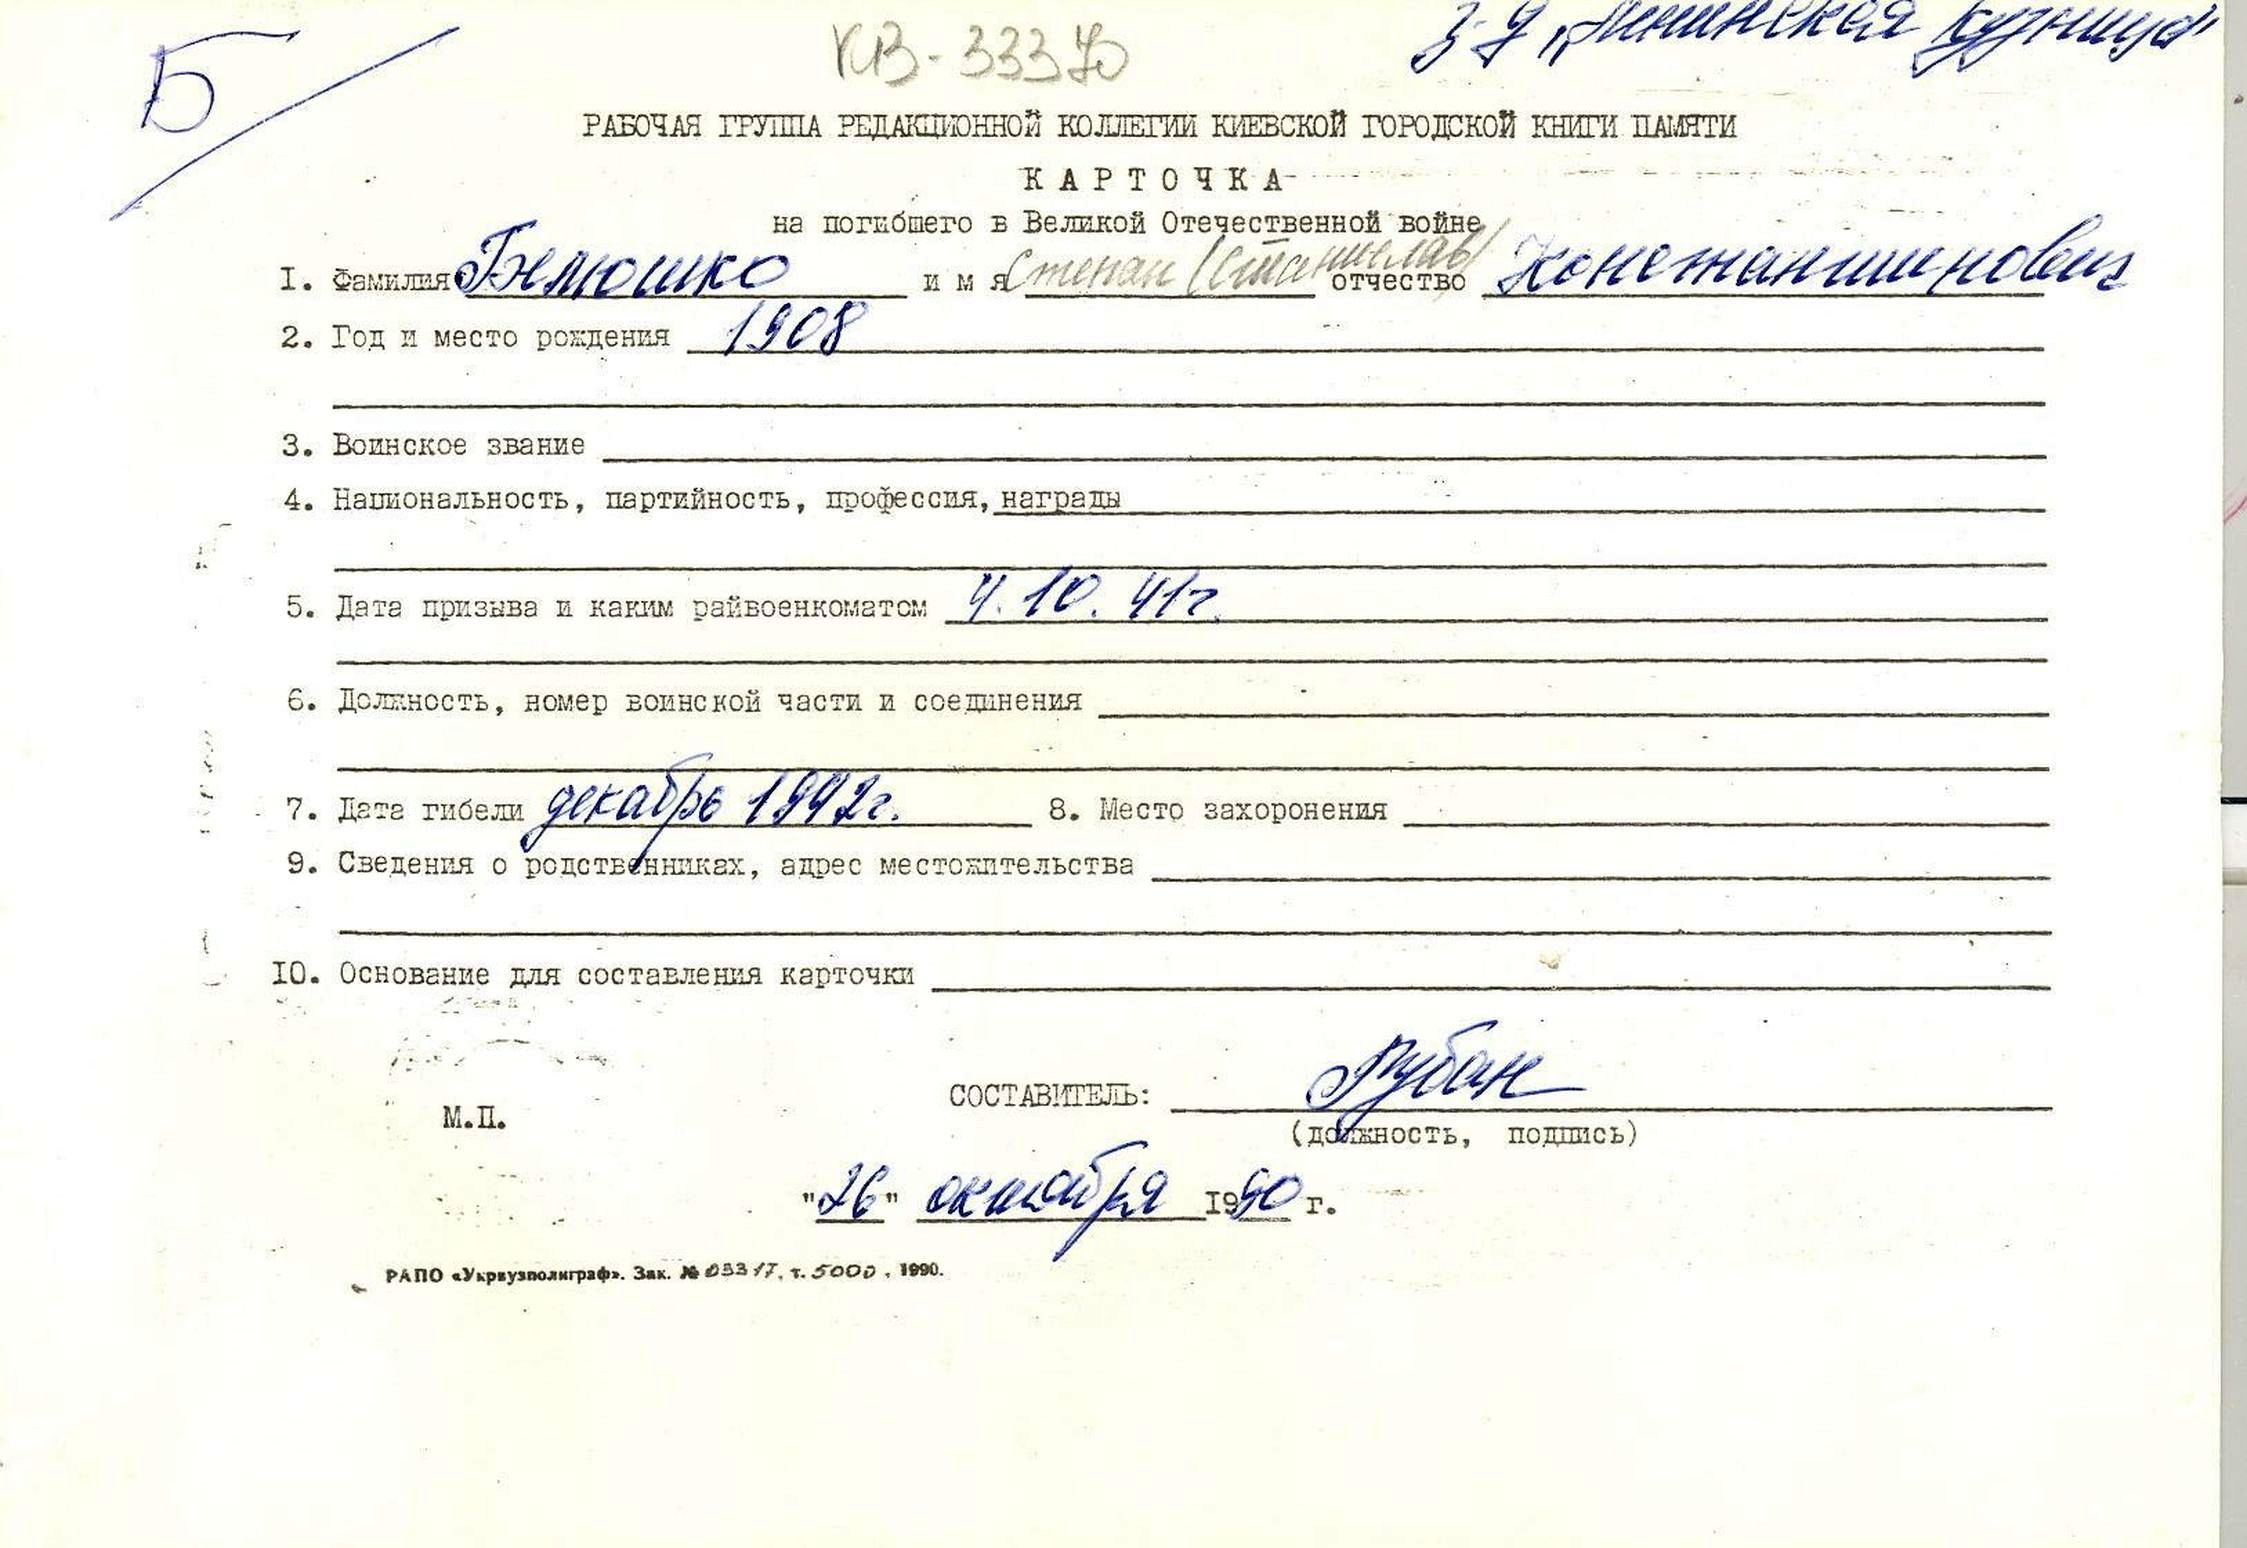 Б
КВ-33370
з-д „Ленинская кузница"
РАБОЧАЯ ГРУППА РЕДАКЦИОННОЙ КОЛЛЕГИИ КИЕВСКОЙ ГОРОДСКОЙ КНИГИ ПАМЯТИ
КАРТОЧКА
на погибшего в Великой Отечественной войне
I. Фамилия имя Степан (Станислав) отчество Константинович
2. Год и место рождения 1908
3. Воинское звание
4. Национальность, партийность, профессия, награды
5. Дата призыва и каким райвоенкоматом 4.10.41г.
6. Должность, номер воинской части и соединения
7. Дата гибели декабрь 1942г. 8. Место захоронения
9. Сведения о родственниках, адрес местожительства
IO. Основание для составления карточки
СОСТАВИТЕЛЬ: Рубан
М.П.
(должность, подпись)
"26" октября 1990 г.
РАПО «Укрвузполиграф». Зак. № 03317, т. 5000, 1990.